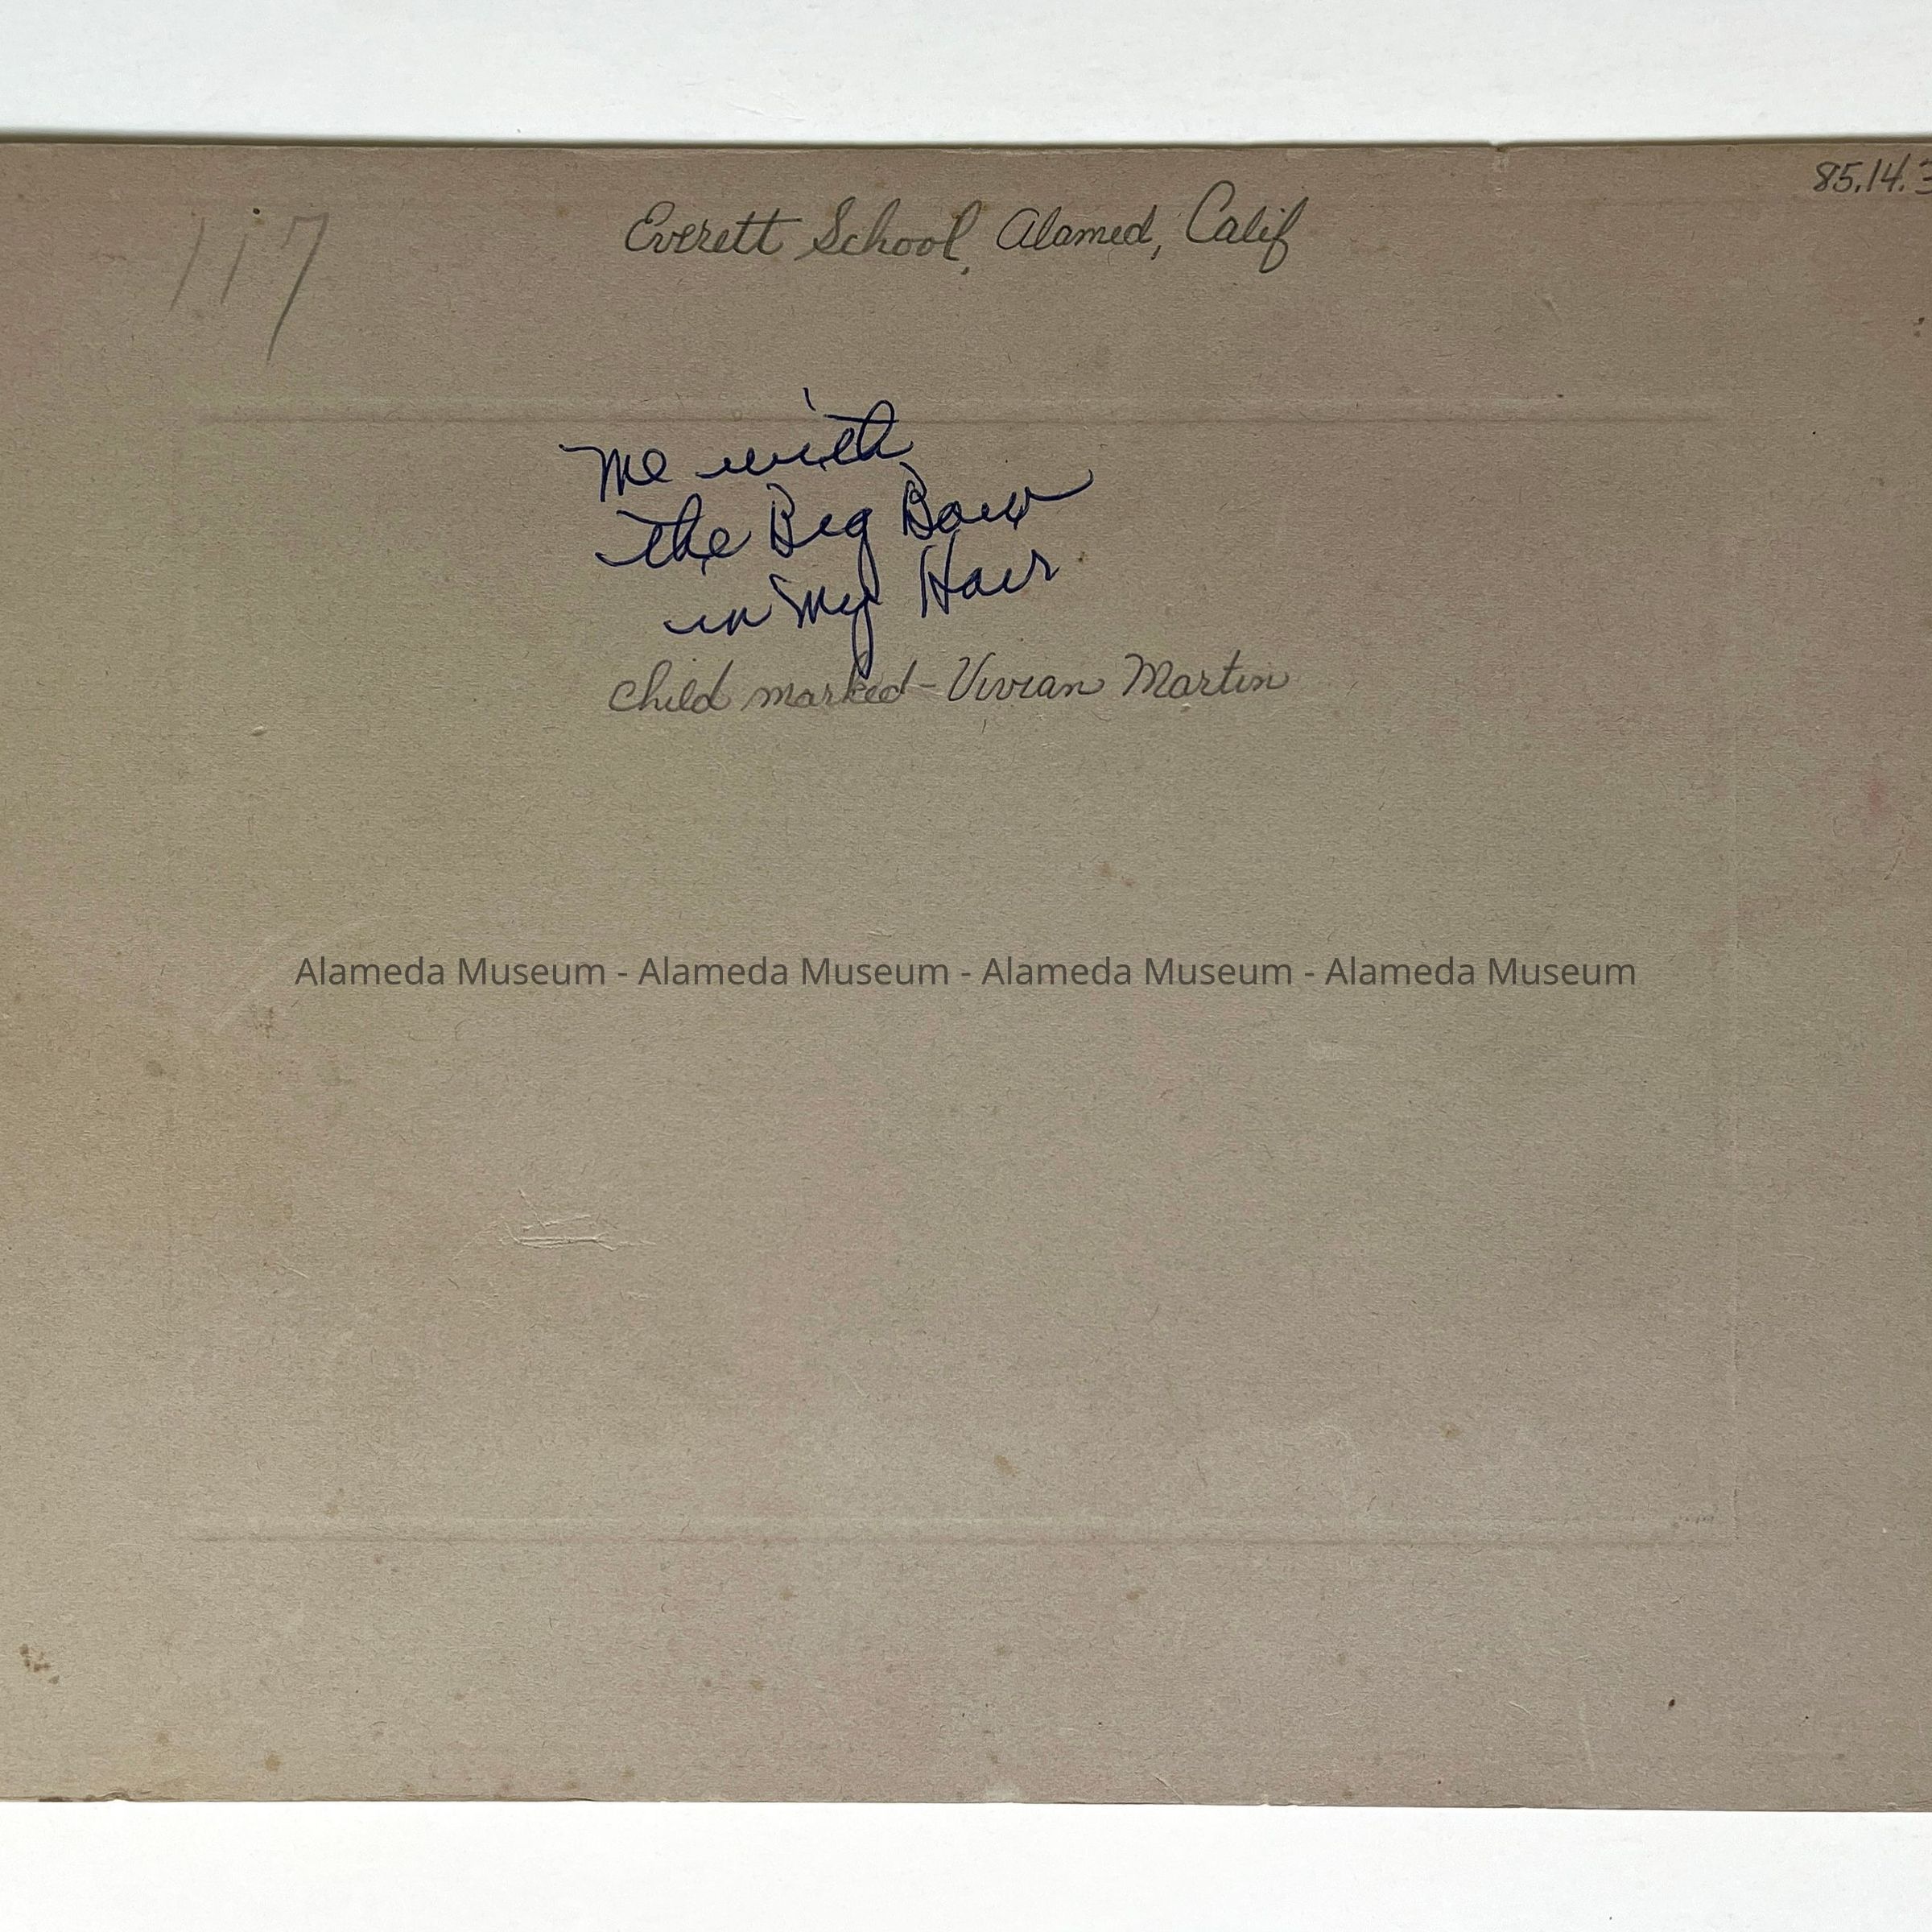 85.14.3
117
Everett School, Alamed, Calif
Me with
the Big Bow
in My Hair
Child marked - Vivian Martin
Alameda Museum - Alameda Museum - Alameda Museum - Alameda Museum